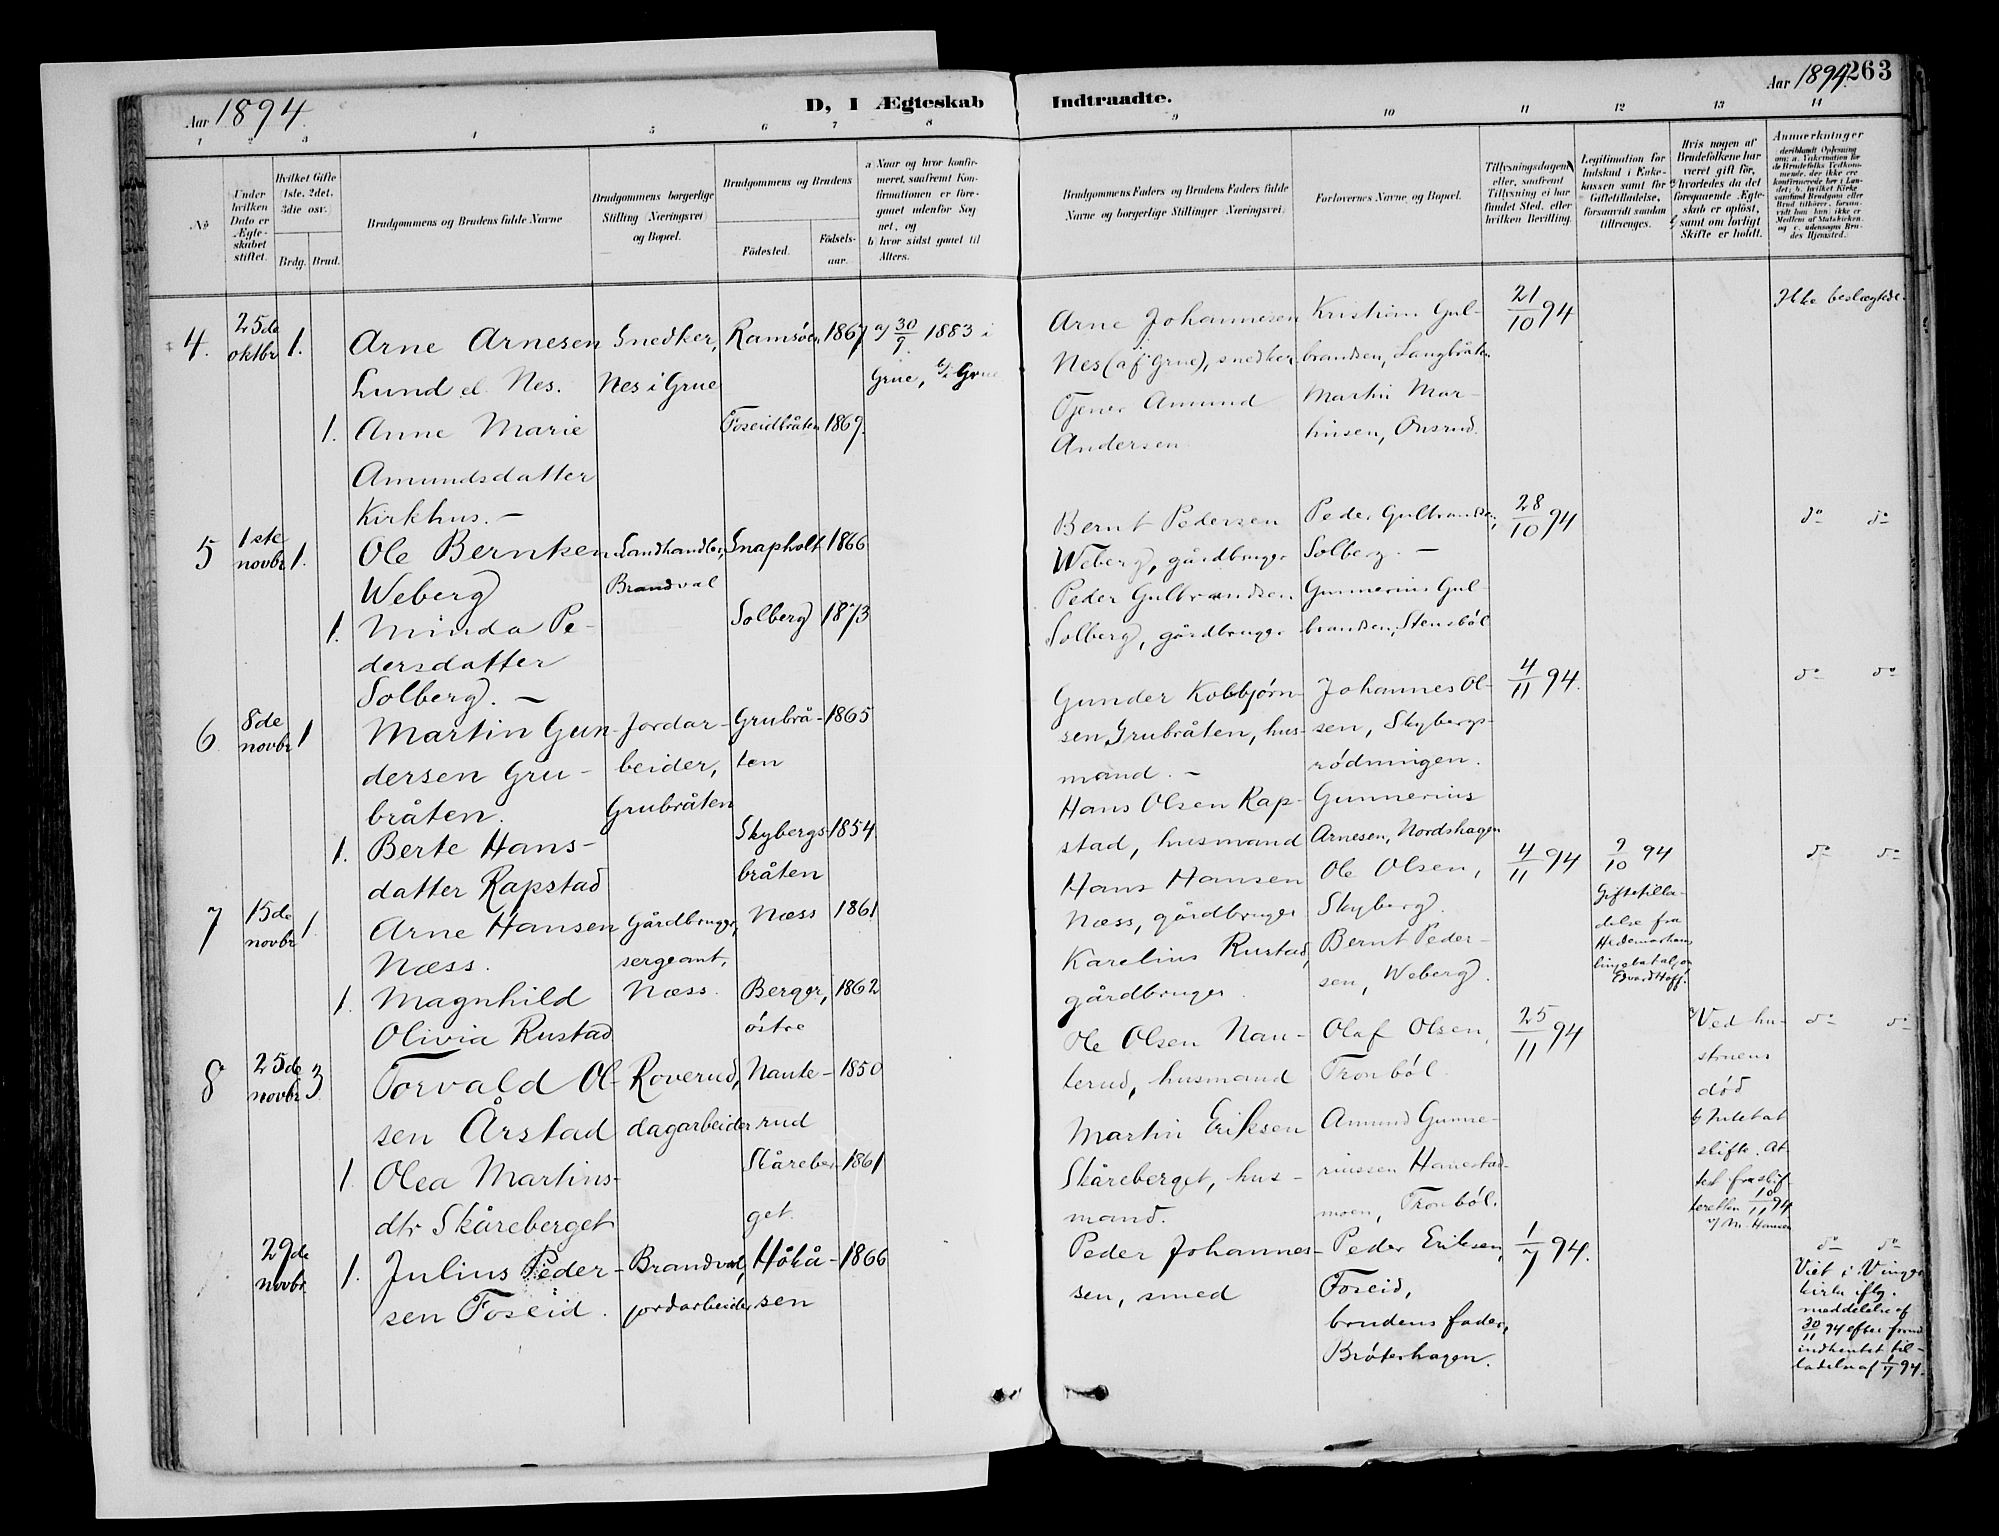 Aar 1894.
D, I Ægteskab
Indtraadte.
Aar 1894.
263
1 2 3 4 5 6 7 8
9 10 11 12 13 14
No
Under hvilken Dato er Ægteskabet stiftet.
Hvilket Gifte 1ste, 2det, 3die osv.
Brdg. Brud.
Brudgommens og Brudens fulde Navne
Brudgommens borgerlige Stilling (Næringsvei) og Bopæl.
Brudgommens og Brudens
Födested.
Födselsaar.
a Naar og hvor konfirmeret, saafremt Konfirmationen er foregaaet udenfor Sognet, og
b hvor sidst gaaet til Alters.
Brudgommens Faders og Brudens Faders fulde Navne og borgerlige Stillinger (Næringsvei).
Forlovernes Navne og Bopæl.
Tillysningsdagene, eller, saafremt Tillysning ei har fundet Sted, efter hvilken Bevilling.
Legitimation for Indskud i Enkekassen samt for Giftetilladelse, forsaavidt saadan tiltrænges.
Hvis nogen af Brudefolkene har været gift för, a hvorledes da det foregaaende Ægteskab er oplöst, b samt om lovligt Skifte er holdt.
Anmærkninger
4. 25de oktbr 1.
Arne Arnesen
Lund el. Nes.
Snedker,
Nes i Grue
Ramsöen 1867
a) 30/9 1883 i
Grue, b/ Grue
Arne Johannesen
Nes (af Grue), snedker
Kristian Gul-
brandsen, Langbråten
21/10 94
Ikke beslægtede.
1. Anne Marie
Amundsdatter
Kirkhus. –
Foseidbråten 1869.
Tjener Amund
Andersen
Martin Mar-
husen, Onsrud.
5 1ste novbr 1.
Ole Berntsen
Weberg
Landhandler,
Brandval
Snapholt 1866
Bernt Pedersen
Weberg, gårdbruger
Peder Gulbrandsen,
Solberg. –
28/10 94
do do
1. Minda Pe-
dersdatter
Solberg. –
Solberg 1873
Peder Gulbrandsen
Solberg, gårdbruger
Gunnerius Gul-
brandsen, Stensböl
6 8de novbr 1
Martin Gun-
dersen Gru-
bråten.
Jordar-
beider,
Grubråten
Grubrå-
ten
1865
Gunder Kolbjørn-
sen Grubråten, hus-
mand. –
Johannes Ol-
sen, Skybergs-
rödningen.
4/11 94.
do do
1. Berte Hans-
datter Rapstad
Skybergs-
bråten
1854.
Hans Olsen Rap-
stad, husmand
Gunnerius
Arnesen, Nordshagen
7 15de novbr 1.
Arne Hansen
Næss.
Gårdbruger,
sergeant,
Næss.
Næss 1861
Hans Hansen
Næss, gårdbruger
Ole Olsen,
Skyberg.
4/11 94
9/10 94
Giftetilla-
delse fra
Hedemarkens
do do
1. Magnhild
Olivia Rustad
Berger,
östre
1862
Karelius Rustad,
gårdbruger.
Bernt Peder-
sen, Weberg.
8 25de novbr 3.
Torvald Ol-
sen Årstad
Roverud,
dagarbeider
Nante-
rud
1850
Ole Olsen Nan-
terud, husmand
Olaf Olsen,
Tronböl.
25/11 94
a/ Ved hu-
struens
död
b/ Intetat
skifte. At-
test fra skif-
teretten 10/11 94.
v/ M. Hansen
do do
1. Olea Martins-
dtr Skåreberget
Skåreber-
get.
1861
Martin Eriksen
Skåreberget, hus-
mand.
Amund Gunne-
riussen Hanestad-
moen, Tronböl.
29de novbr. 1.
Julius Peder-
sen Foseid.
Brandval,
jordarbeider
Hökå-
sen
1866
Peder Johannes-
sen, smed
Peder Eriksen,
Foseid,
brudens fader,
Bröterhagen.
1/7 94.
do do
Viet i Vinger
kirke iflg.
meddelelse af
30/11 94 efter forud
indhentet til-
ladelse af 1/7 94.